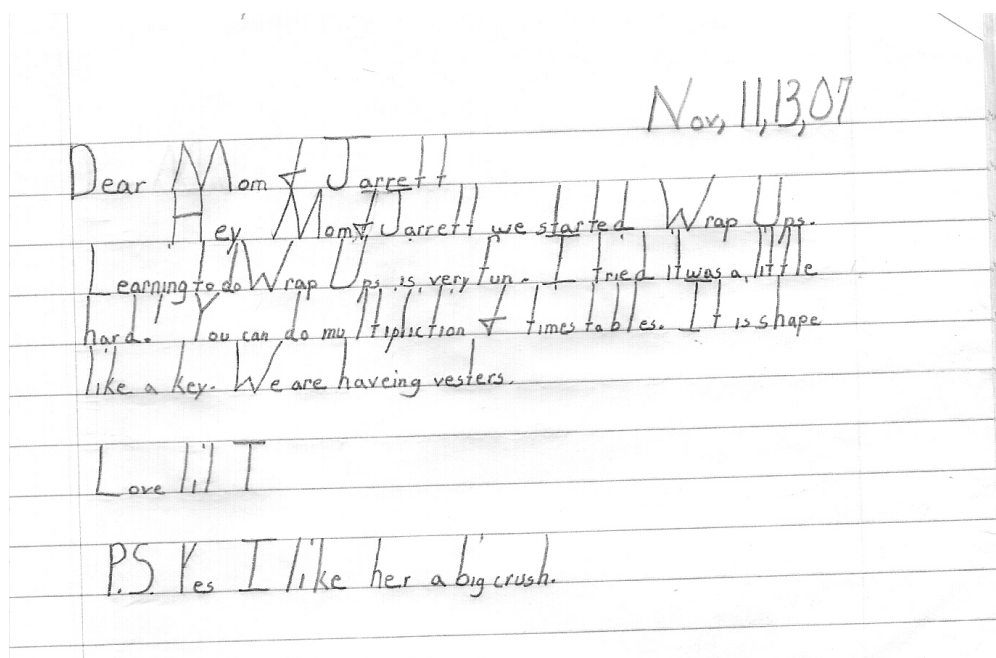 Nov, 11,13,07
Dear Mom & Jarrett
Hey Mom & Jarrett we started Wrap Ups.
Learning to do Wrap Ups is very fun. I tried it was a little
hard. You can do multipliction & times tables. It is shape
like a key. We are haveing vesters.
Love lil T
P.S. Yes I like her a big crush.